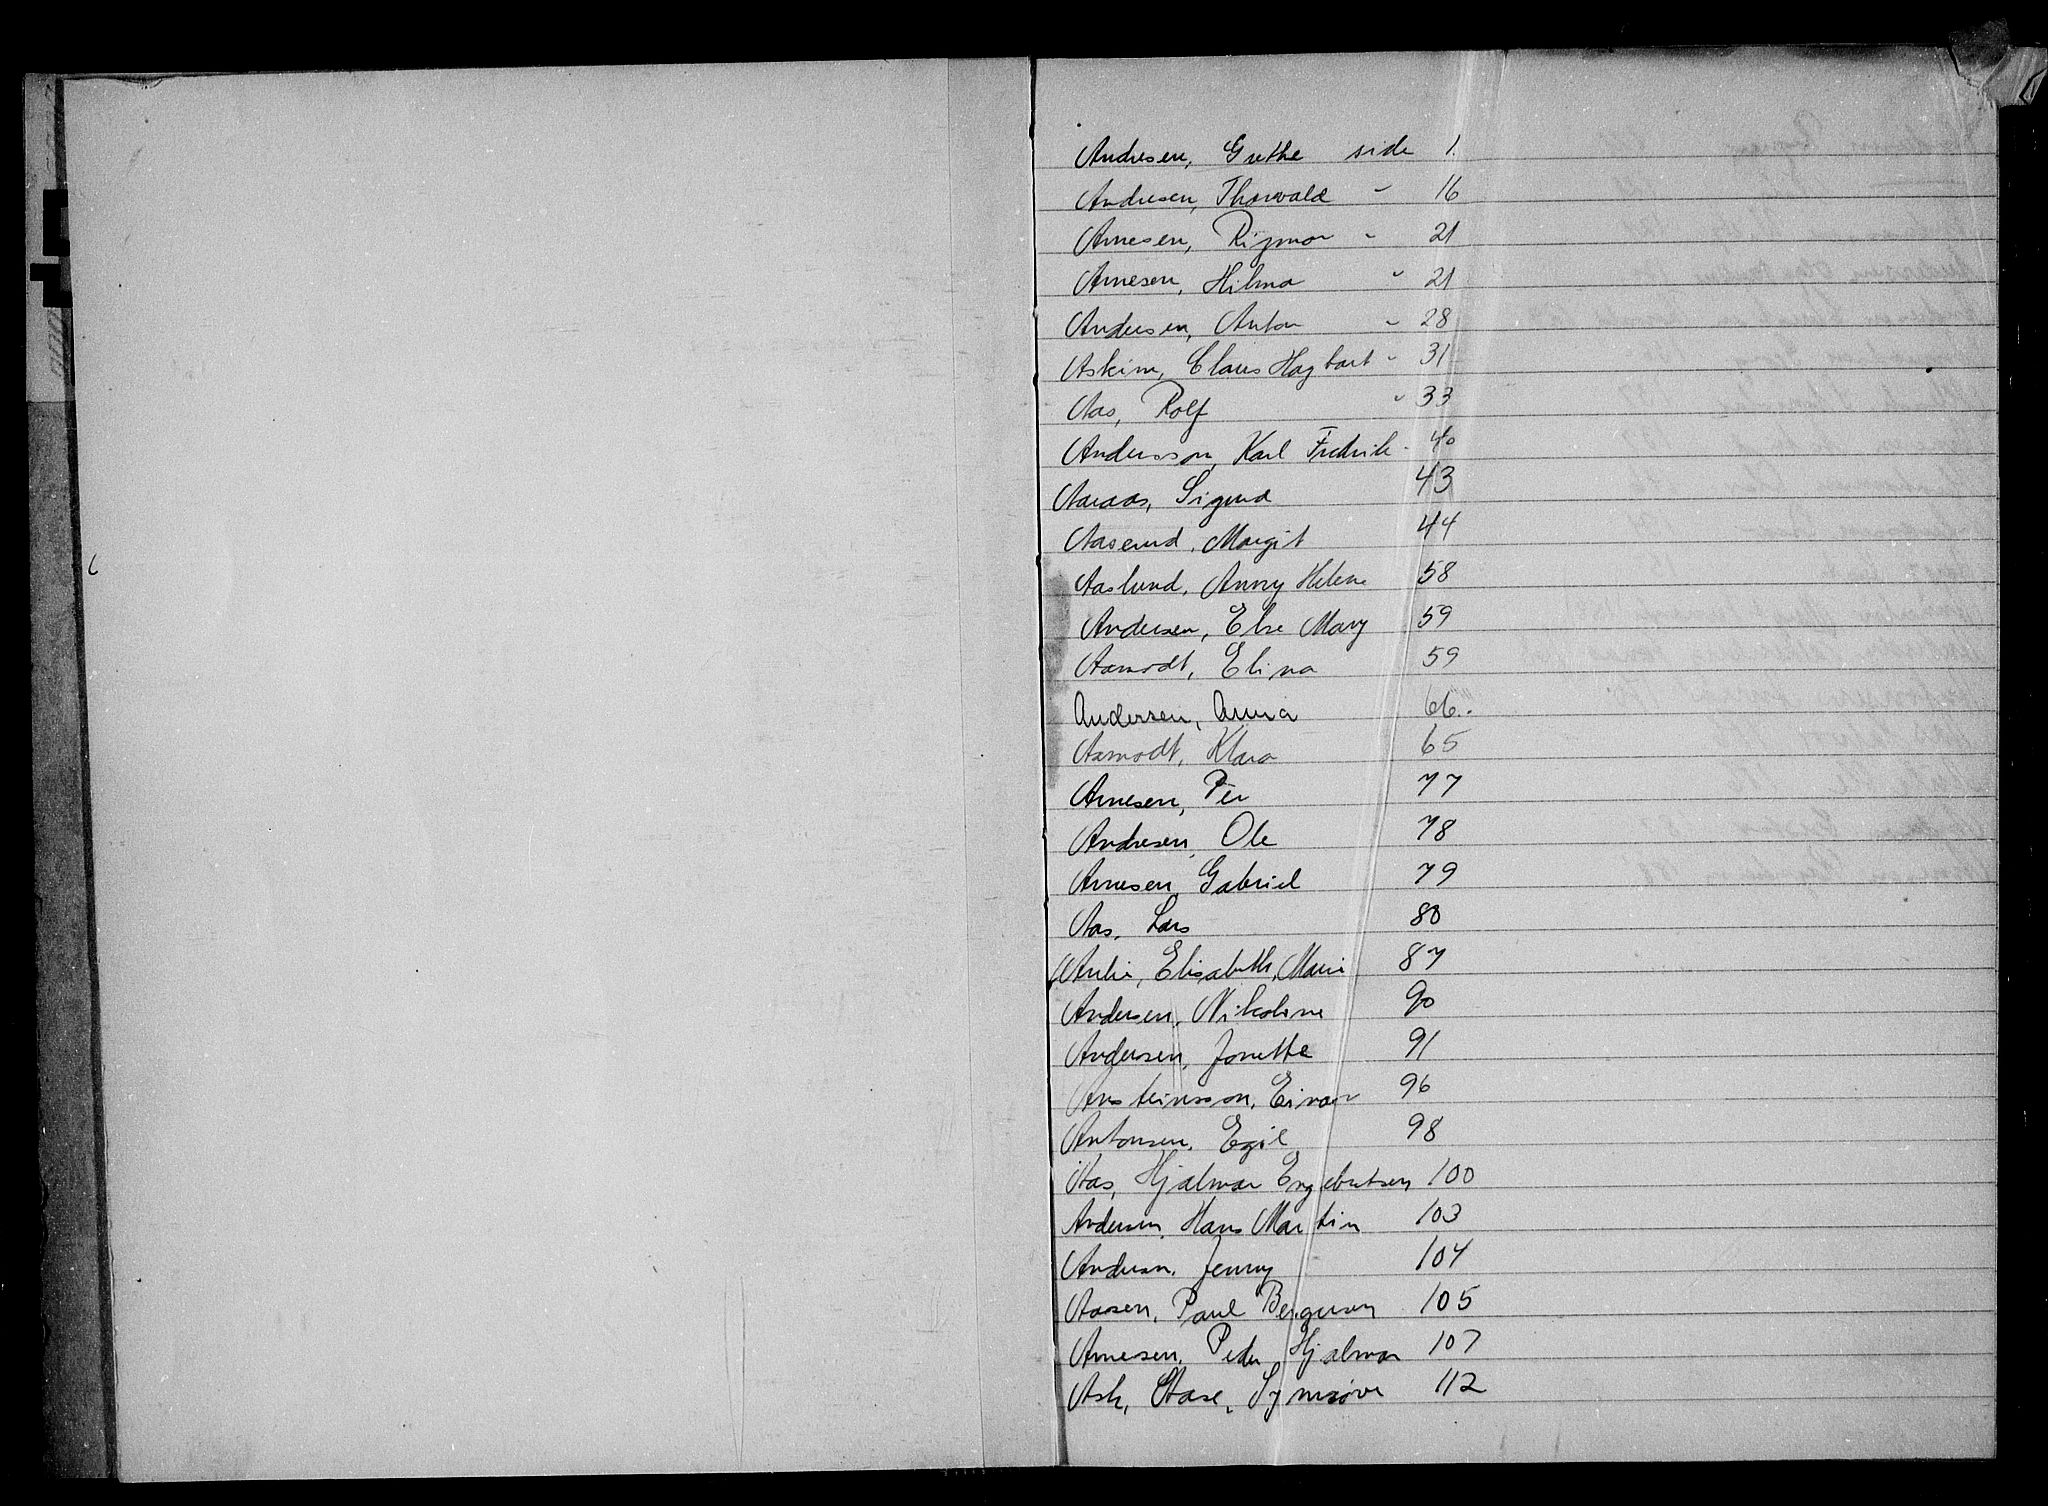 Andresen, Grethe side 1.
Andresen, Thorvald " 16
Arnesen, Rigmor " 21
Arnesen, Hilma " 21
Andersen, Anton " 28
Askim, Claus Hagbart " 31
Aas, Rolf " 33
Andersson, Karl Fredrik - 40
Aaraas, Sigurd 43
Aaserud, Margit 44
Aaslund, Anny Helene 58
Andersen, Else Mary 59
Aamodt, Elina 59
Andersen, Anna 66.
Aamodt, Klara 65
Arnesen, Per 77
Andresen, Ole 78
Arnesen, Gabriel 79
Aas, Lars 80
Aulie, Elisabeth, Marie 87
Andersen, Nikoline 90
Andersen, Jonette 91
Arnsteinsson, Einar 96
Antonsen, Egil 98
Aas, Hjalmar Engebretsen 100
Andersen, Hans Martin 103
Andersn, Jenny 104
Aasen, Paul Bergersen 105
Arnesen, Peder Hjalmar 107
Ask, Aase, Synnøve 112